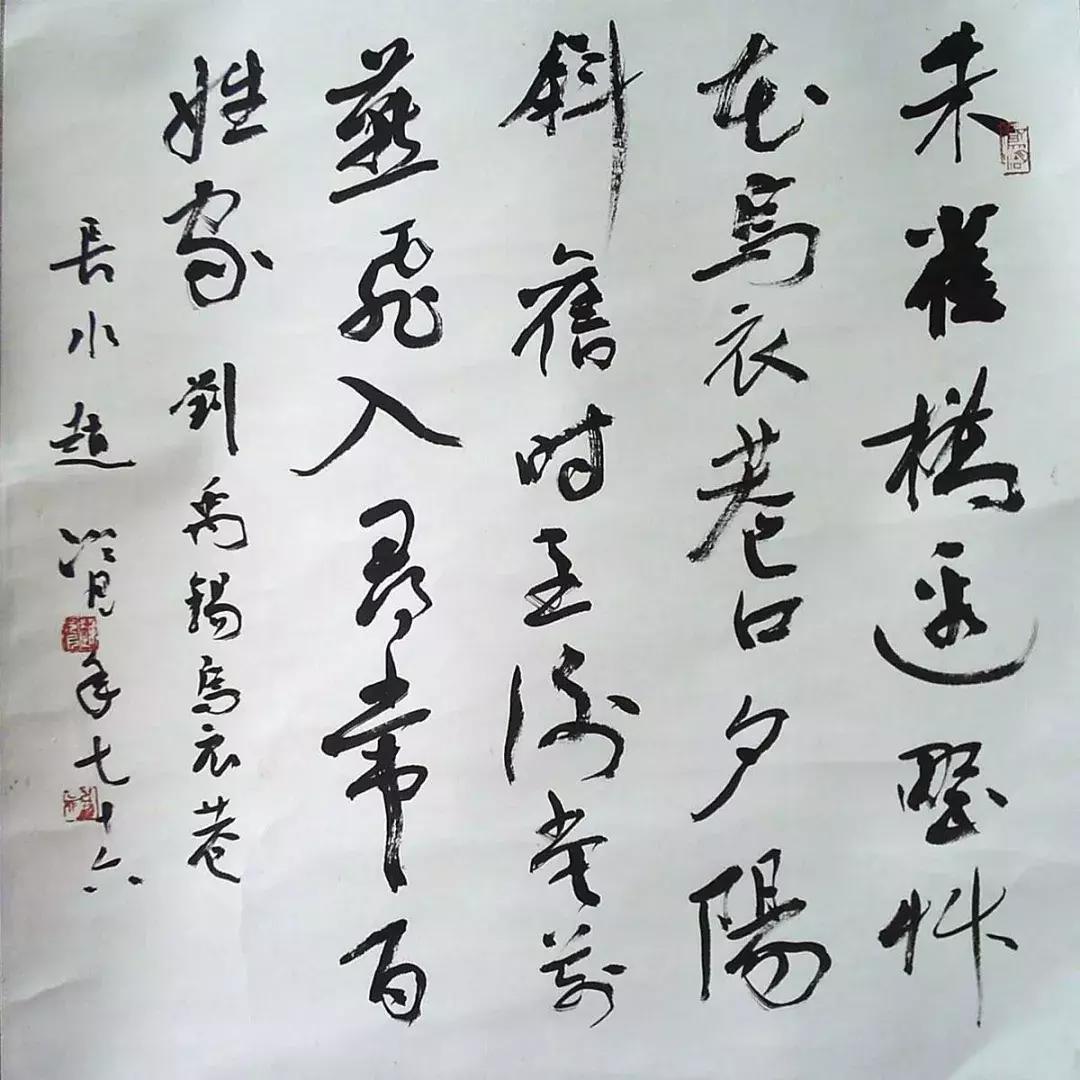 朱雀橋邊野艸
花烏衣巷口夕陽
斜舊时王謝堂前
燕飛入尋常百
姓家 劉禹錫烏衣巷
長水趙冷月年七十六